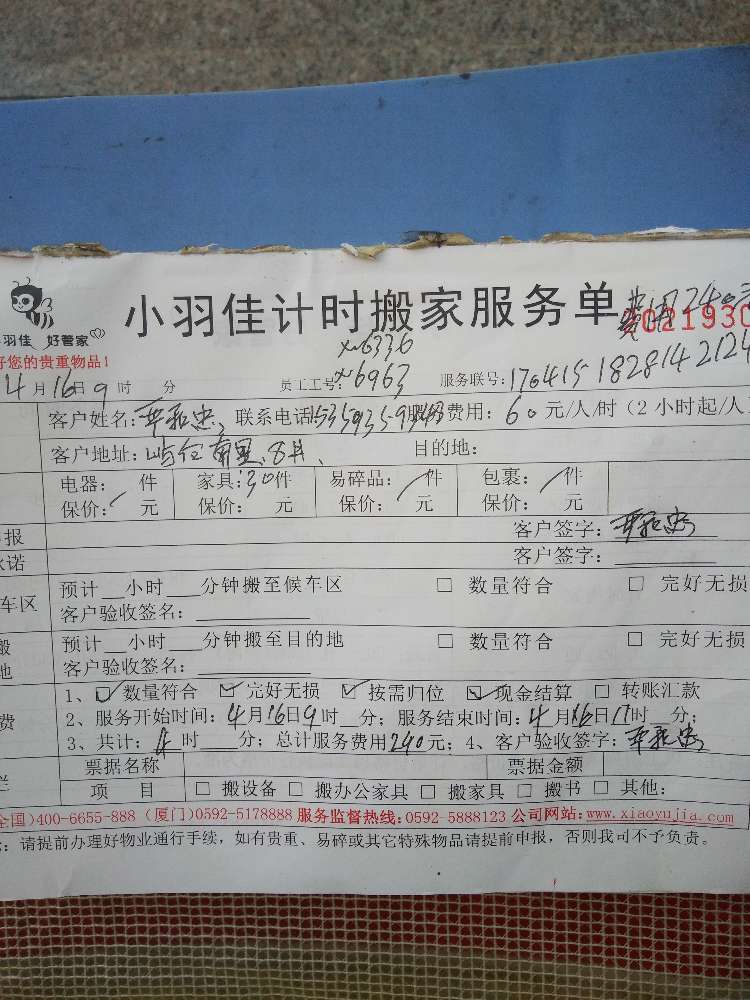 小羽佳计时搬家服务单 费用240元
羽佳 好管家
2021930
好您的贵重物品！
xm6336
4月16日9时 分 员工工号：xm6963 服务联号：1704151828142124
客户姓名： 联系电话 服务费用：60元/人/时（2小时起/人
客户地址： 8# 目的地：
电器： 件 家具：30件 易碎品：/件 包裹：/件
保价：/ 元 保价： 元 保价： 元 保价： 元
报 客户签字：
诺 客户签字：
车区 预计__小时__分钟搬至候车区 □ 数量符合 □ 完好无损
客户验收签名：
搬 预计__小时__分钟搬至目的地 □ 数量符合 □ 完好无损
地 客户验收签名：
1、☑数量符合 ☑完好无损 ☑按需归位 ☑现金结算 □ 转账汇款
费 2、服务开始时间：4月16日9时__分；服务结束时间：4月16日11时__分；
3、共计：4时__分；总计服务费用240元；4、客户验收签字：
票据名称 票据金额
栏 项 目 □ 搬设备 □ 搬办公家具 □ 搬家具 □ 搬书 □ 其他：
全国)400-6655-888 (厦门)0592-5178888 服务监督热线:0592-5888123 公司网站:www.xiaoyujia.com
：请提前办理好物业通行手续，如有贵重、易碎或其它特殊物品请提前申报，否则我司不予负责。